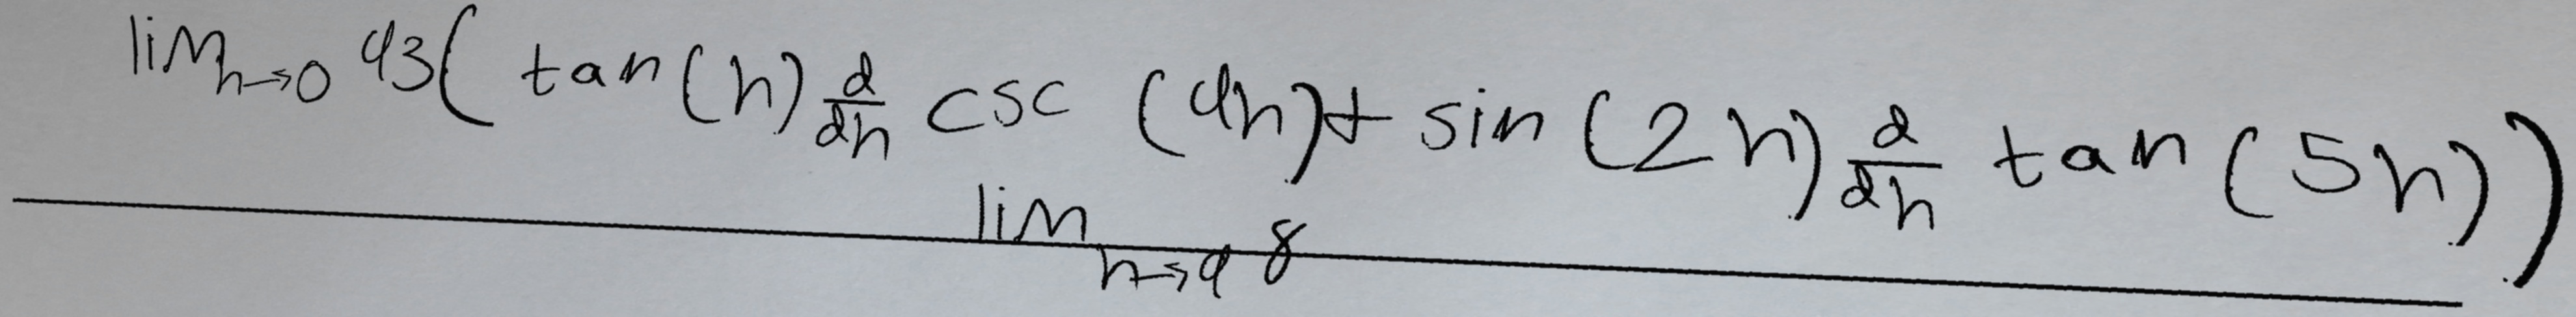 lim h→0 43( tan(h) d/dh csc (4h) + sin(2h) d/dh tan(5h))
lim h→9 8